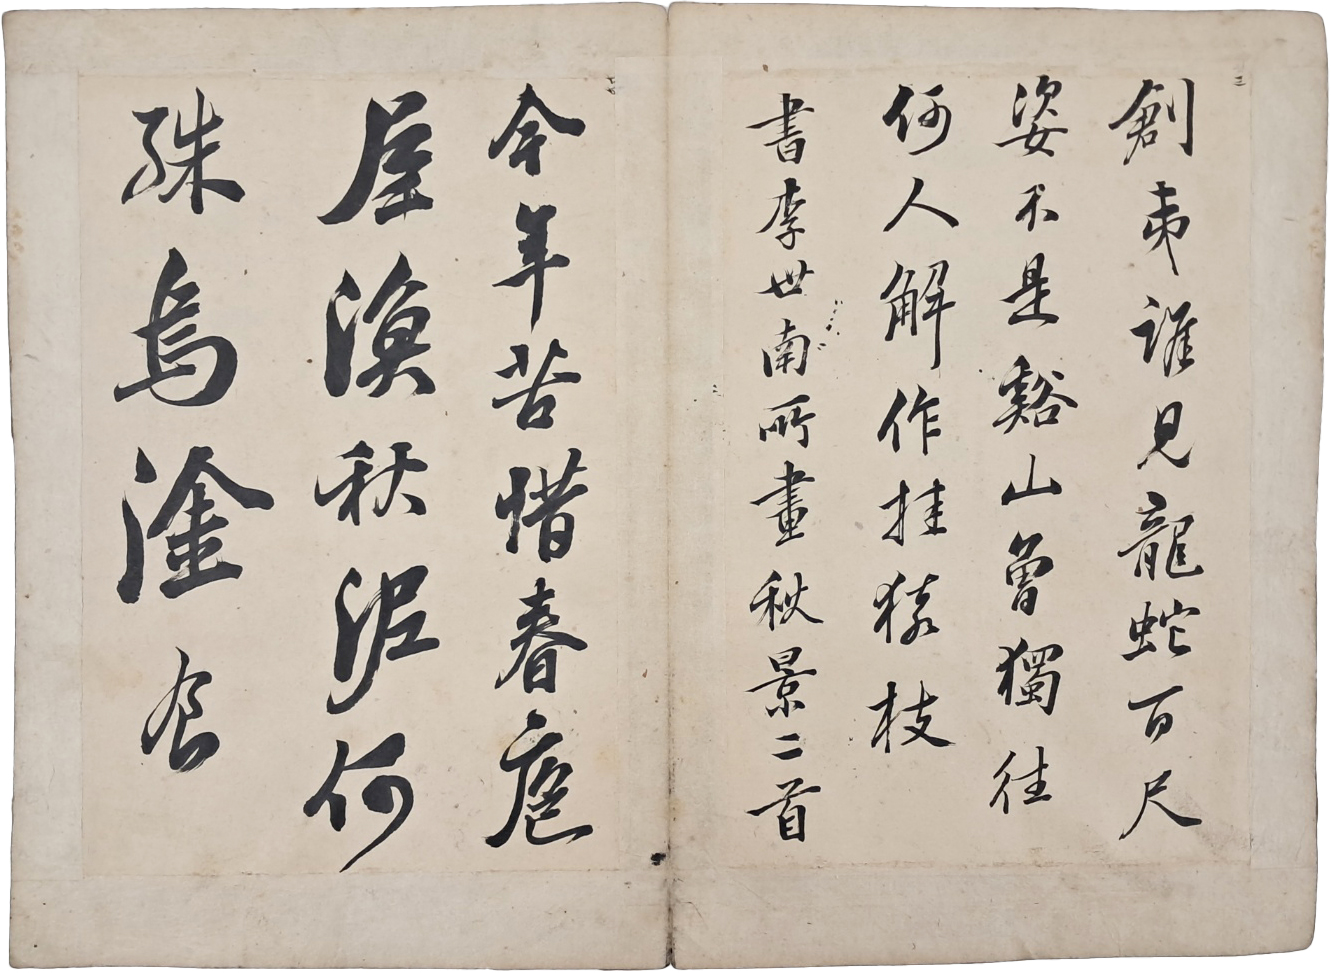 三
創夷誰見龍蛇百尺
姿不是谿山曾獨往
何人解作挂猿枝
書李世南所畫秋景二首
今年苦惜春庖
屋漁秋泥何
殊烏塗